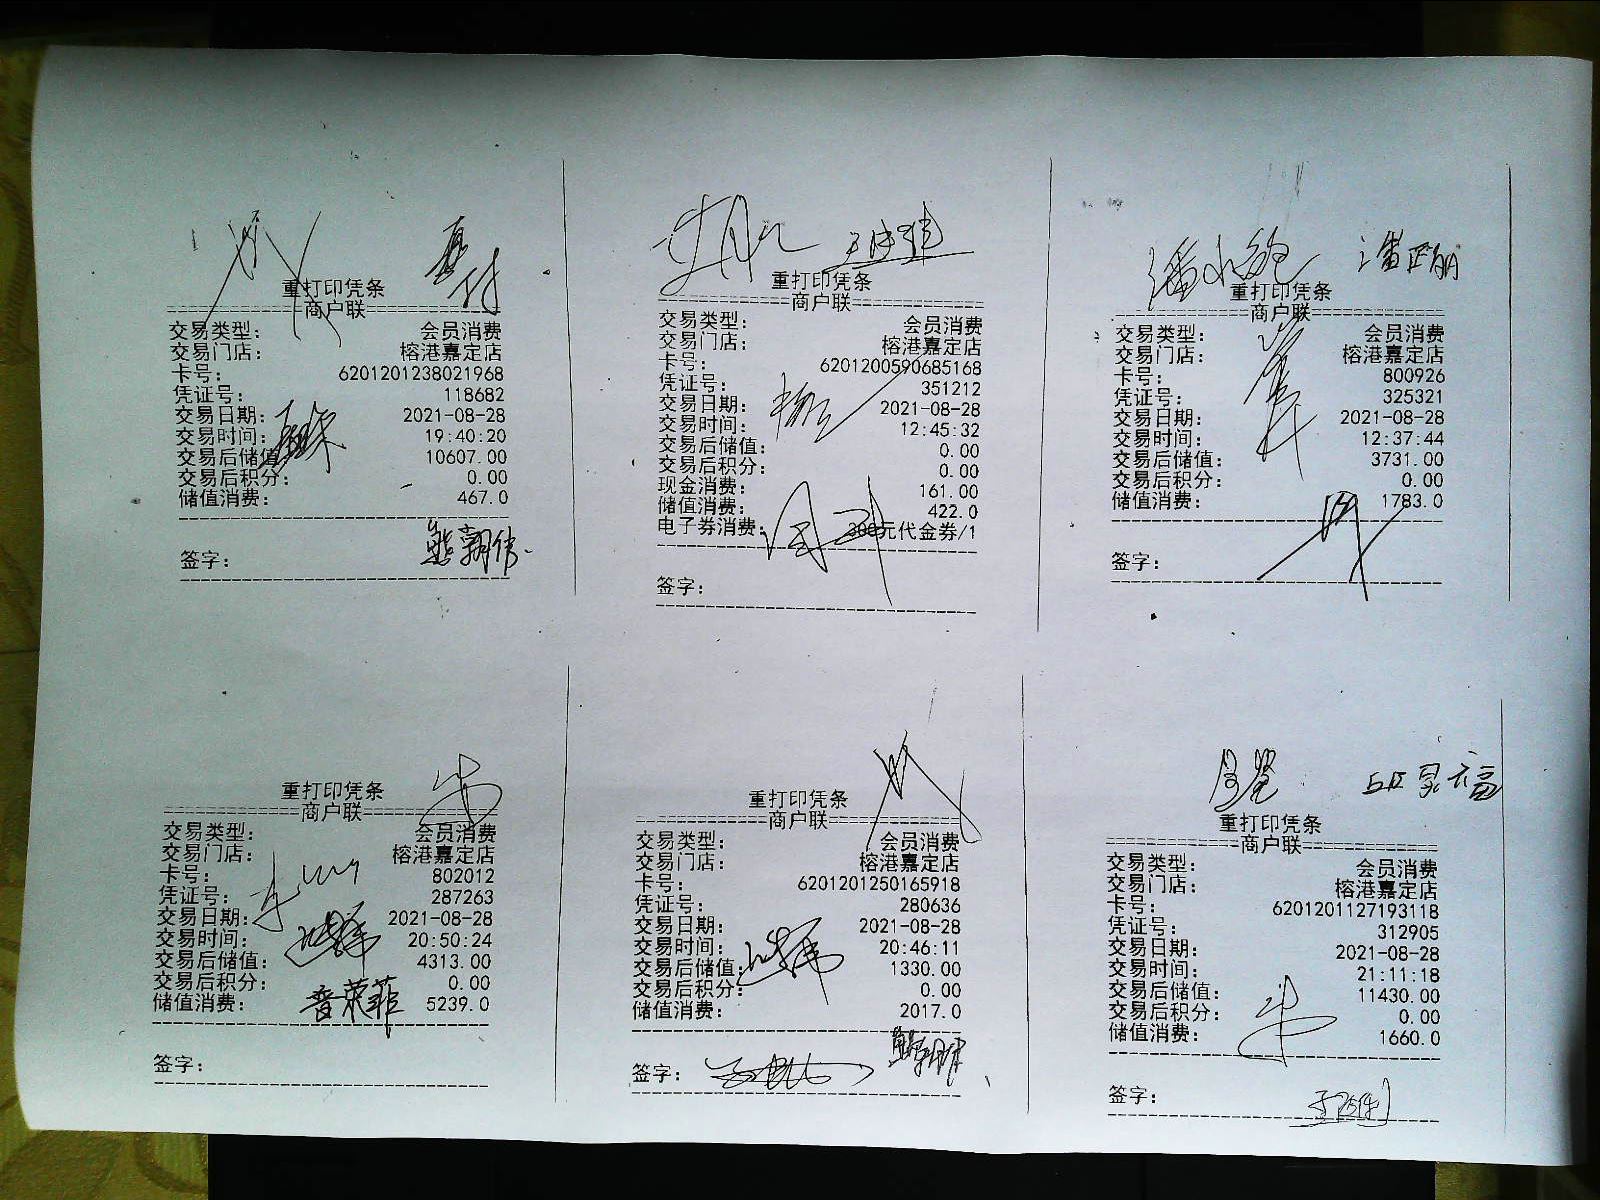 重打印凭条
商户联
交易类型： 会员消费
交易门店： 榕港嘉定店
卡号： 6201201238021968
凭证号： 118682
交易日期： 2021-08-28
交易时间： 19:40:20
交易后储值： 10607.00
交易后积分： 0.00
储值消费： 467.0
熊朝伟
签字：
重打印凭条
商户联
交易类型： 会员消费
交易门店： 榕港嘉定店
卡号： 6201200590685168
凭证号： 351212
交易日期： 2021-08-28
交易时间： 12:45:32
交易后储值： 0.00
交易后积分： 0.00
现金消费： 161.00
储值消费： 422.0
电子券消费： 300元代金券/1
签字：
重打印凭条
商户联
交易类型： 会员消费
交易门店： 榕港嘉定店
卡号： 800926
凭证号： 325321
交易日期： 2021-08-28
交易时间： 12:37:44
交易后储值： 3731.00
交易后积分： 0.00
储值消费： 1783.0
签字：
重打印凭条
商户联
交易类型： 会员消费
交易门店： 榕港嘉定店
卡号： 802012
凭证号： 287263
交易日期： 2021-08-28
交易时间： 20:50:24
交易后储值： 4313.00
交易后积分： 0.00
储值消费： 5239.0
签字：
重打印凭条
商户联
交易类型： 会员消费
交易门店： 榕港嘉定店
卡号： 6201201250165918
凭证号： 280636
交易日期： 2021-08-28
交易时间： 20:46:11
交易后储值： 1330.00
交易后积分： 0.00
储值消费： 2017.0
签字：
邱家福
重打印凭条
商户联
交易类型： 会员消费
交易门店： 榕港嘉定店
卡号： 6201201127193118
凭证号： 312905
交易日期： 2021-08-28
交易时间： 21:11:18
交易后储值： 11430.00
交易后积分： 0.00
储值消费： 1660.0
签字：